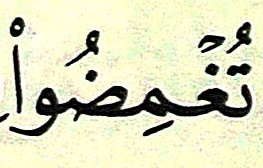 تُغۡمِضُواْ